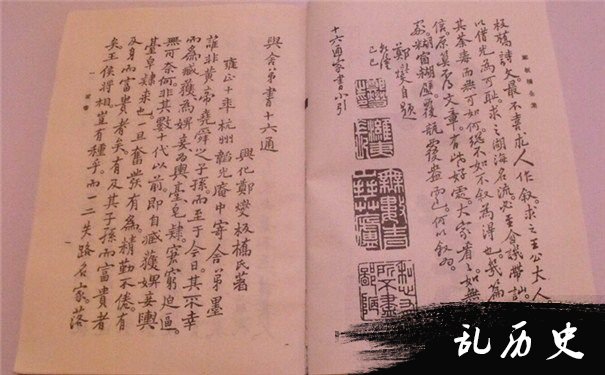 板橋詩文。最不喜求人作叙。求之王公大人
以借光為可恥。求之湖海名流。必至含譏帶訕。
其荼毒而無可如何。總不如不叙為得也。幾篇
信原算不得文章。有些好處。大家看看。如無
處。糊窗糊壁。覆瓿覆盎而已。何以叙為。
鄭燮自題
乾隆己巳
十六通家書小引
與舍弟書十六通
興化鄭燮板橋氏著
雍正十年杭州韜光庵中寄舍弟墨
誰非黃帝堯舜之子孫。而至于今日。其不幸
而為臧獲為婢妾為輿臺皂隸。窘窮迫逼。
無可奈何。非其數十代以前。即自臧獲婢妾輿
臺皂隸來也。一旦奮發有為。精勤不倦。有
及身而富貴者矣。有及其子孫而富貴者
矣。王侯將相豈有種乎。而一二失路名家。落
乱历史